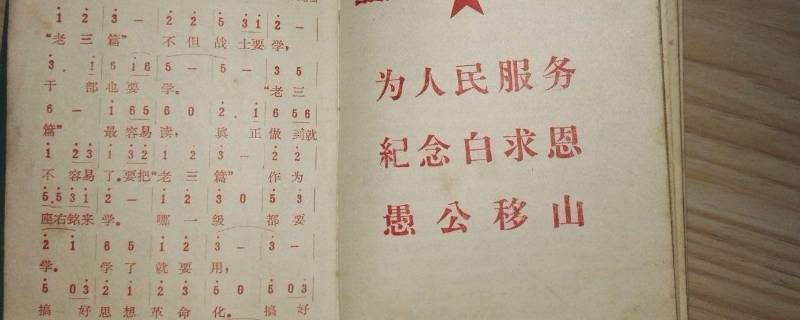 1 2 3 - 2 2 5 3 1 2 -
“老三篇” 不但战士要学,
3. 1 6 1 6 5 - 5 - 3 5
干部也要学。 “老三
6 - 1 6 5 6 0 2. 1 6 5 6
篇” 最容易读, 真正做到就
1 2 3 1 3 2 1 2 3 - 2 2
不容易了。要把“老三篇” 作为
5. 5 3 1 2 - 1 2 3 0 5 3
座右铭来学。 哪一级 都要
2 1 6 5 1 2 3 - 3 -
学。 学了就要用,
5 0 3 2 1 2 3 5 0 0 3
搞 好思想革命化。搞 好
为人民服务
紀念白求恩
愚公移山